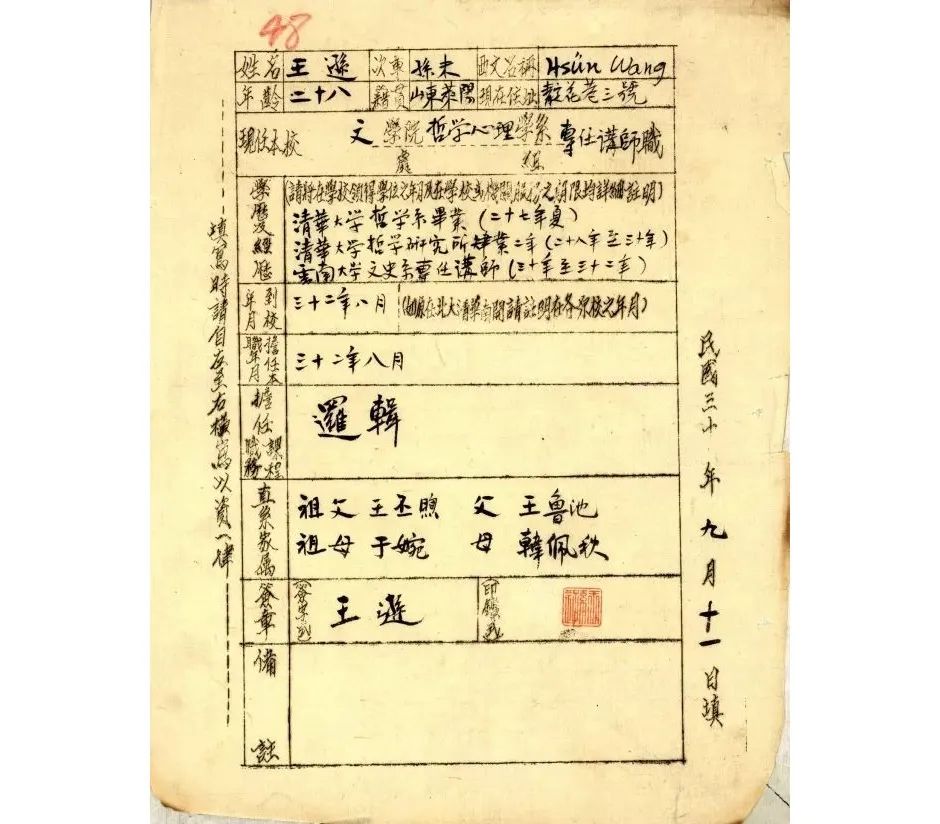 48
姓名 王遜 次章 孫未 西文名稱 Hsün Wang
年齡 二十八 籍貫 山東萊陽 現在住址 教花巷三號
現任本校 文學院哲学心理學系 專任講師職
處 組
學歷及經歷
清華大学哲学系畢業(二十七年夏)
清華大学哲学研究所肄業二年(二十八年至三十年)
雲南大学文史系專任講師(三十年至三十二年)
到校年月 三十二年八月 (如原在北大清華南開請註明在各原校之年月)
擔任本職年月 三十二年八月
擔任課程職務 邏輯
直系家屬 祖父 王丕煦 父 王魯池
祖母 于婉 母 韓佩秋
簽章 (簽字式) 王遜 (印鑑式)
備註
民國三十 年九月十一日填
填寫時請自左至右橫寫以資一律